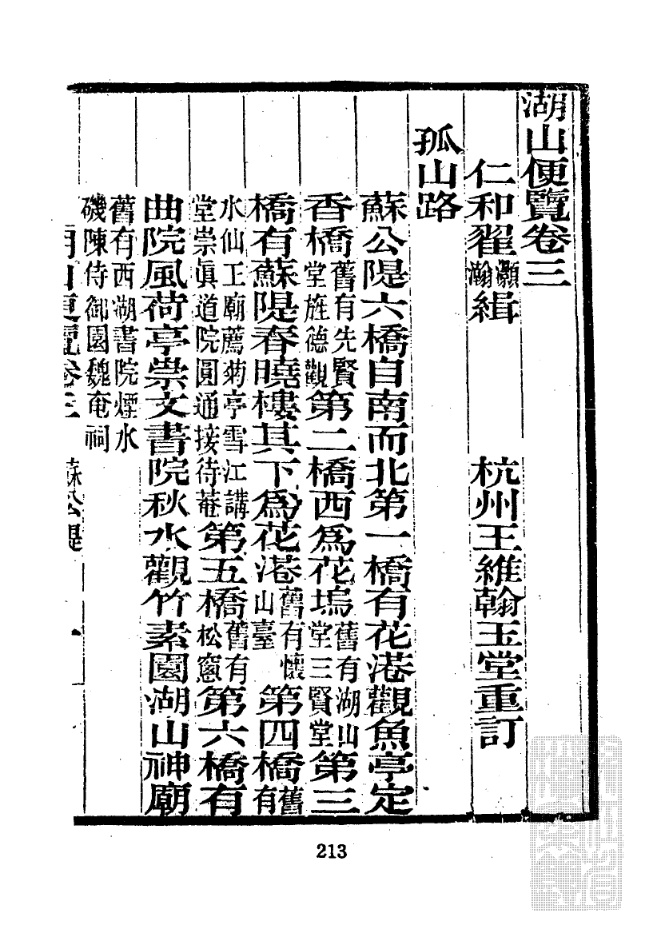 湖山便覽卷三
仁和翟灝瀚緝 杭州王維翰玉堂重訂
孤山路
蘇公隄六橋自南而北第一橋有花港觀魚亭定
香橋舊有先賢堂旌德觀第二橋西爲花塢舊有湖山堂三賢堂第三
橋有蘇隄春曉樓其下爲花港舊有懷山臺第四橋舊有
水仙王廟薦菊亭雪江講堂崇眞道院圓通接待菴第五橋舊有松窻第六橋有
曲院風荷亭崇文書院秋水觀竹素園湖山神廟
舊有西湖書院煙水磯陳侍御園魏奄祠
湖山便覽卷三 蘇公隄 一
213